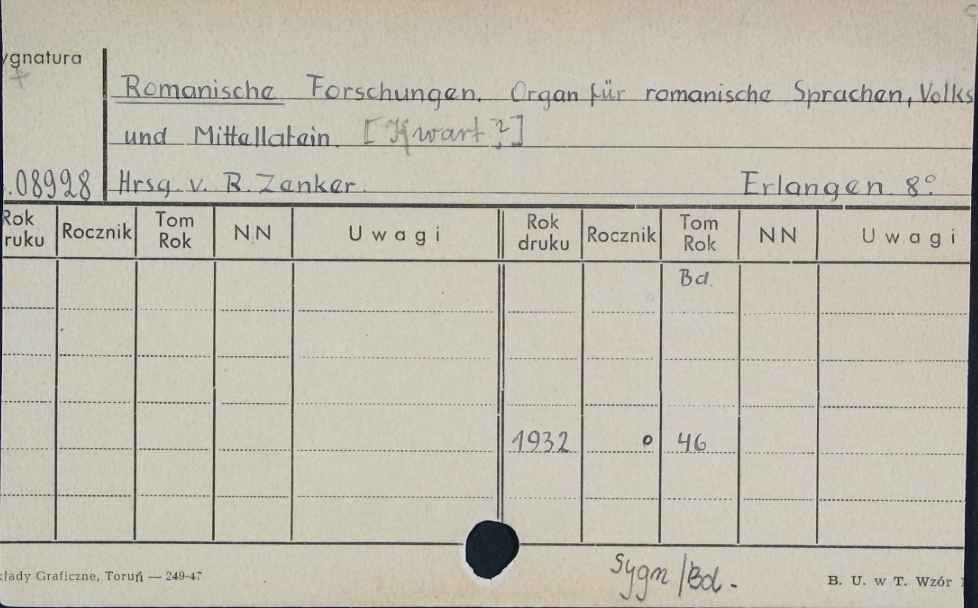 ygnatura
Romanische Forschungen. Organ für romanische Sprachen, Volks
und Mittellatein. [Kwart?]
.08928 Hrsg. v. R. Zenker. Erlangen 8°
Rok ruku Rocznik Tom Rok NN Uwagi Rok druku Rocznik Tom Rok NN Uwagi
Bd.
1932 o 46
kłady Graficzne, Toruń — 249-47 Sygn/Bd. B. U. w T. Wzór